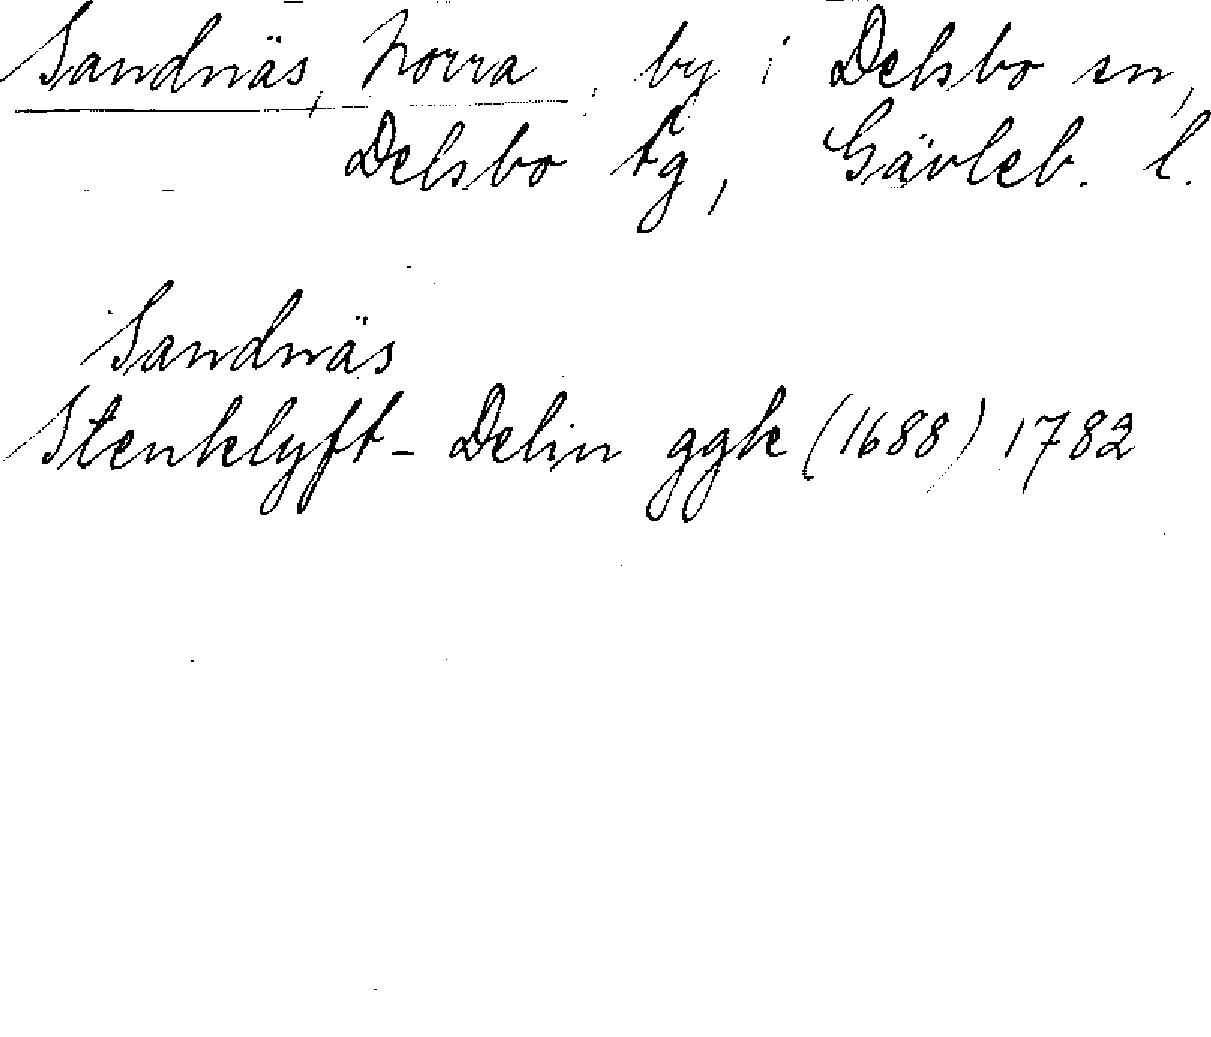 Sandnäs, Norra, by i Delsbo sn,
Delsbo tg, Gävleb. l.
Sandnäs
Stenklyft-Delin ggk (1688) 1782